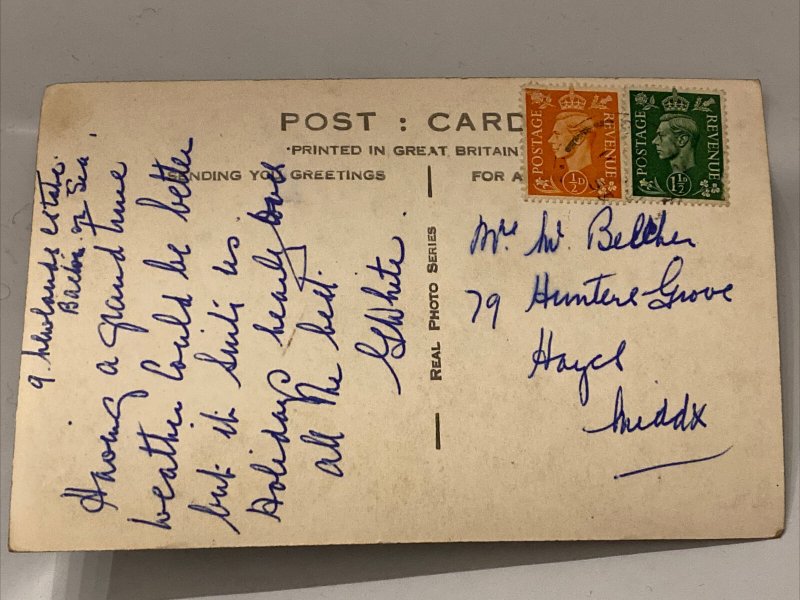 POST : CARD
PRINTED IN GREAT BRITAIN
SENDING YOU GREETINGS
FOR A
REAL PHOTO SERIES
POSTAGE REVENUE
½D
POSTAGE REVENUE
1½D
9 Newlands estate.
Bacton on Sea.
Having a grand time
weather could be better
but it suits us.
Holidays nearly over
all the best.
G White.
Mrs W. Belcher
79 Hunters Grove
Hayes
Middx